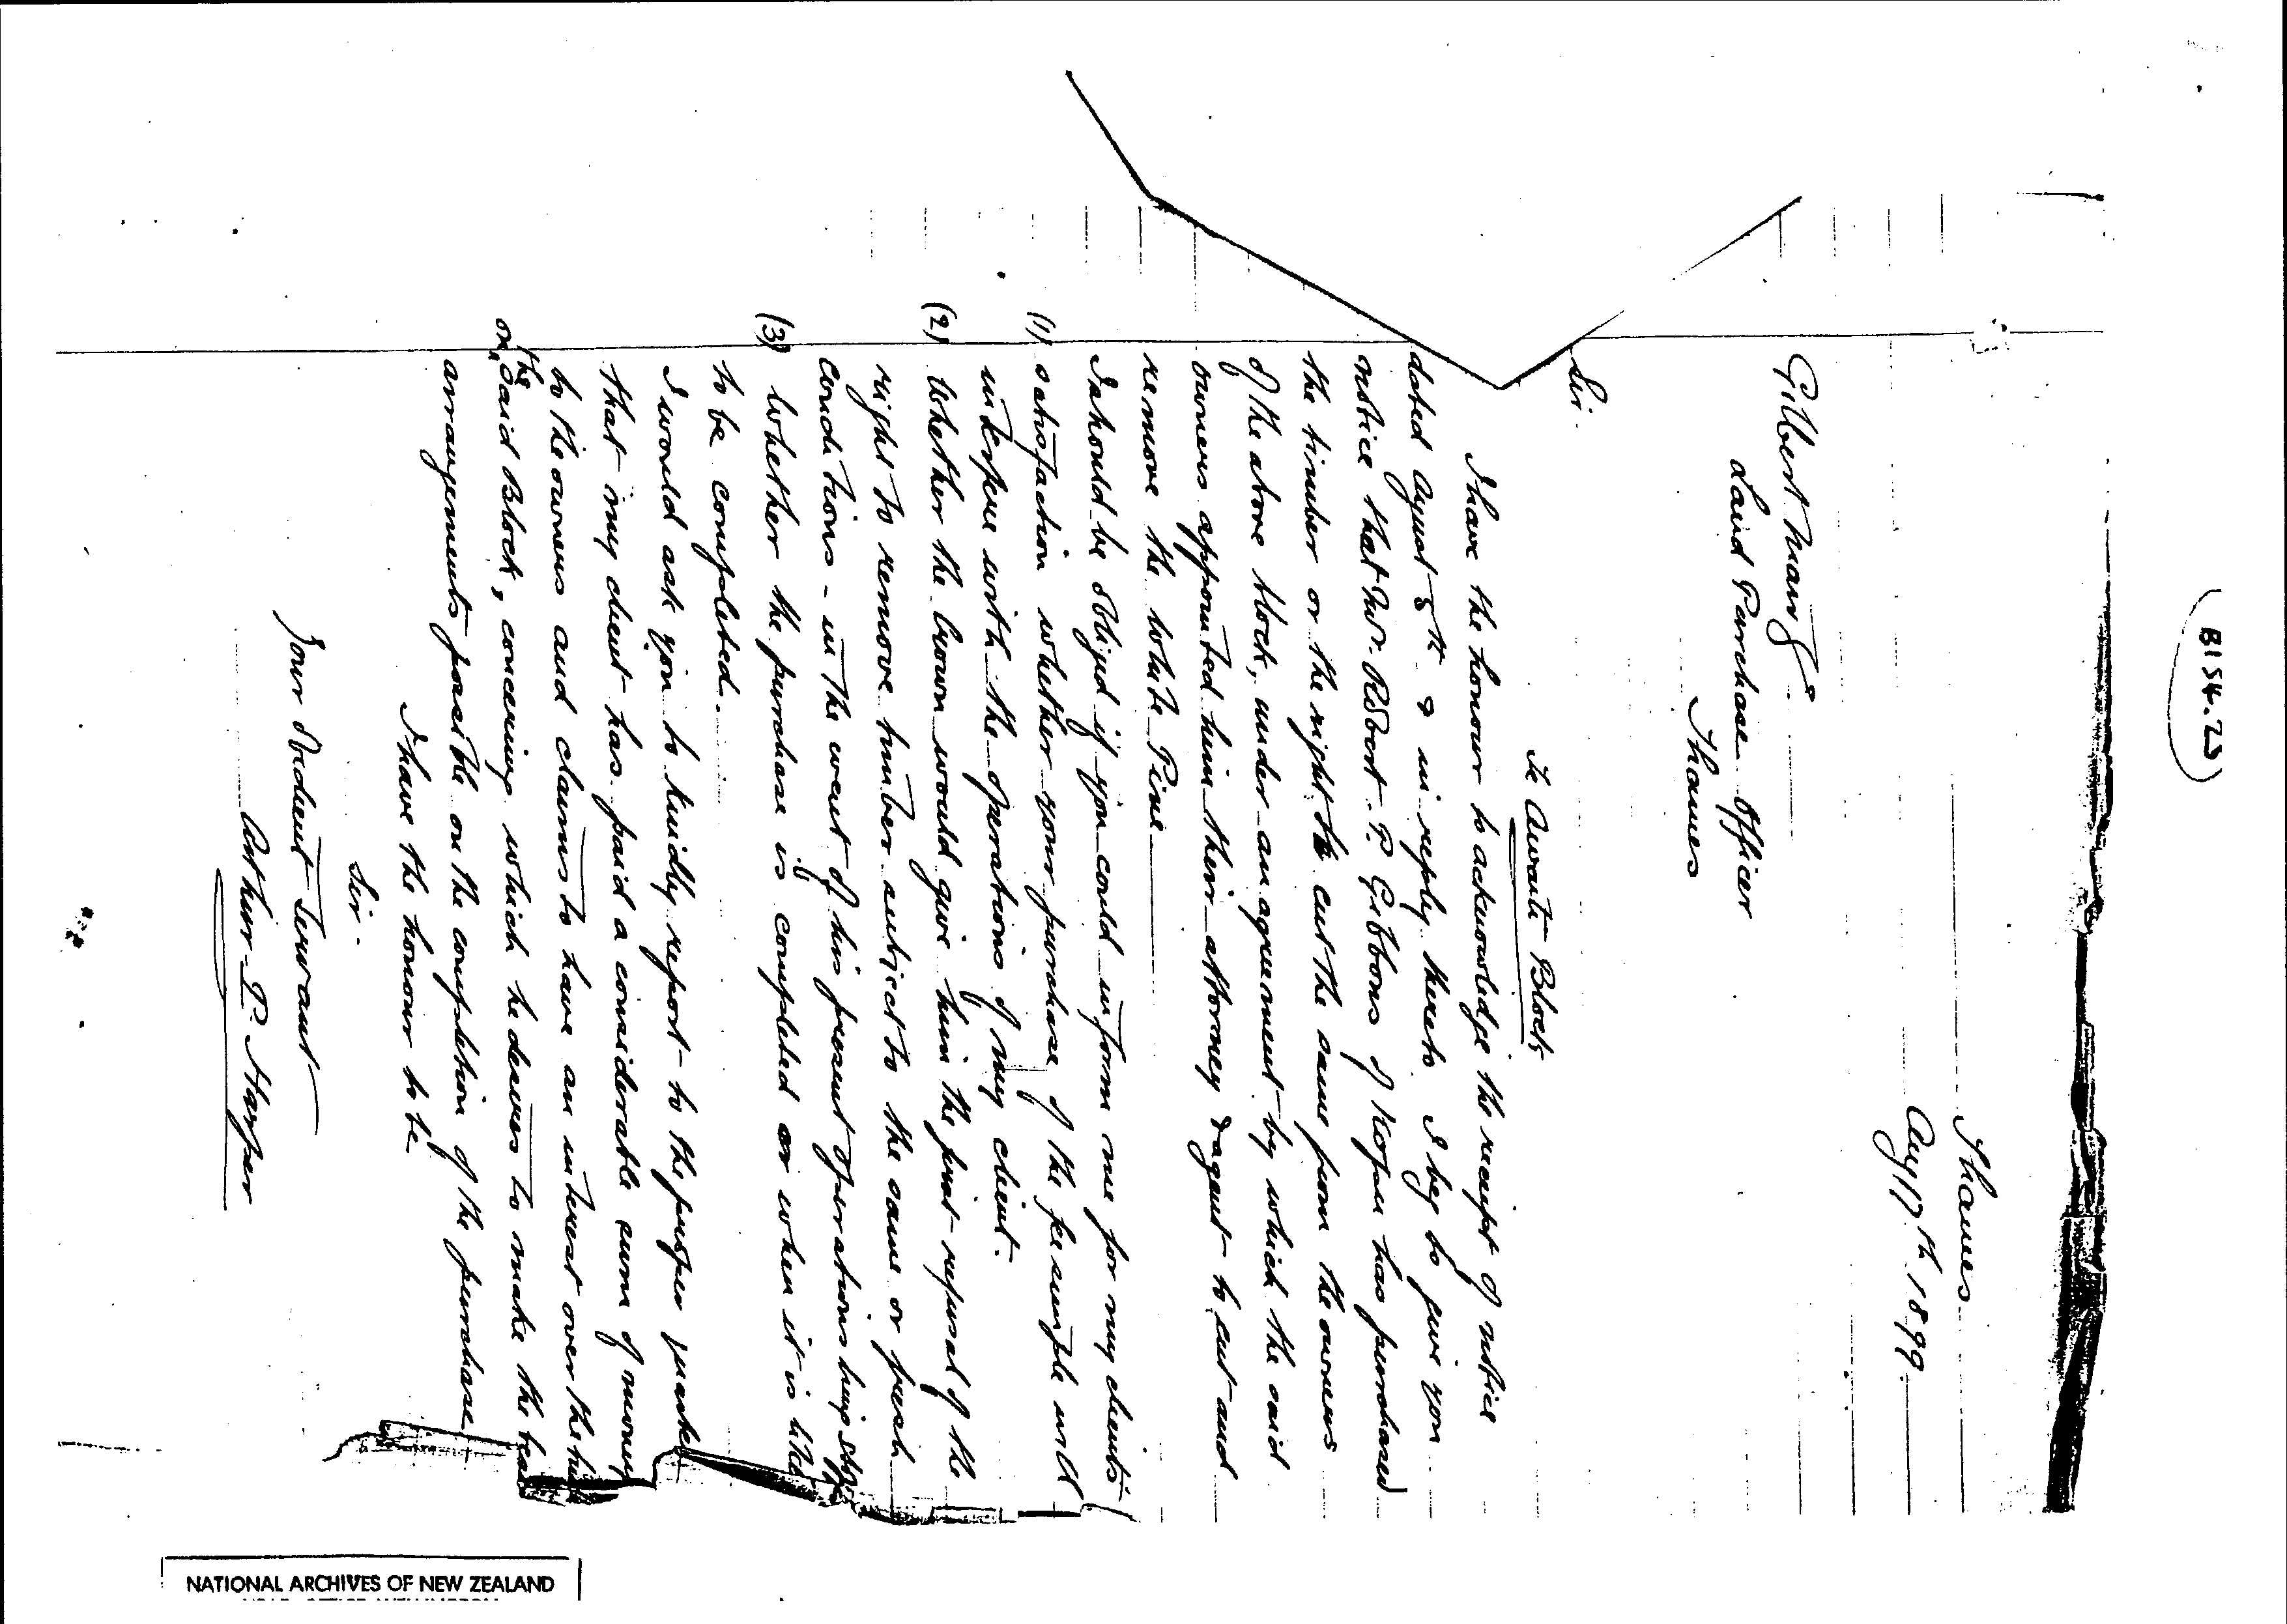 B154.25
Thames
Aug 17th 1899
Gilbert Mair Esq
Land Purchase Officer
Thames
Te Awaiti Block
Sir.
I have the honour to acknowledge the receipt of notice
dated August 8th & in reply thereto I beg to give you
notice that Mr. Robert P. Gibbons of Kopu has purchased
the timber or the right to cut the same from the owners
of the above block, under an agreement by which the said
owners appointed him their attorney & agent to cut and
remove the White Pine
I should be obliged if you could inform me for my clients
(1) satisfaction whether your purchase of the fee simple will
interfere with the operations of my client.
(2) Whether the Crown would give him the first refusal of the
right to remove timber subject to the same or fresh
conditions - in the event of his present operations being stop
(3) Whether the purchase is completed or when it is like
to be completed.
I would ask you to kindly report to the proper quarter
that my client has paid a considerable sum of money
to the owners and claims to have an interest over the
on the said Block, concerning which he desires to make the bes
arrangements possible on the completion of the purchase
I have the honour to be
Sir.
Your Obedient Servant
Arthur P. Harper
NATIONAL ARCHIVES OF NEW ZEALAND